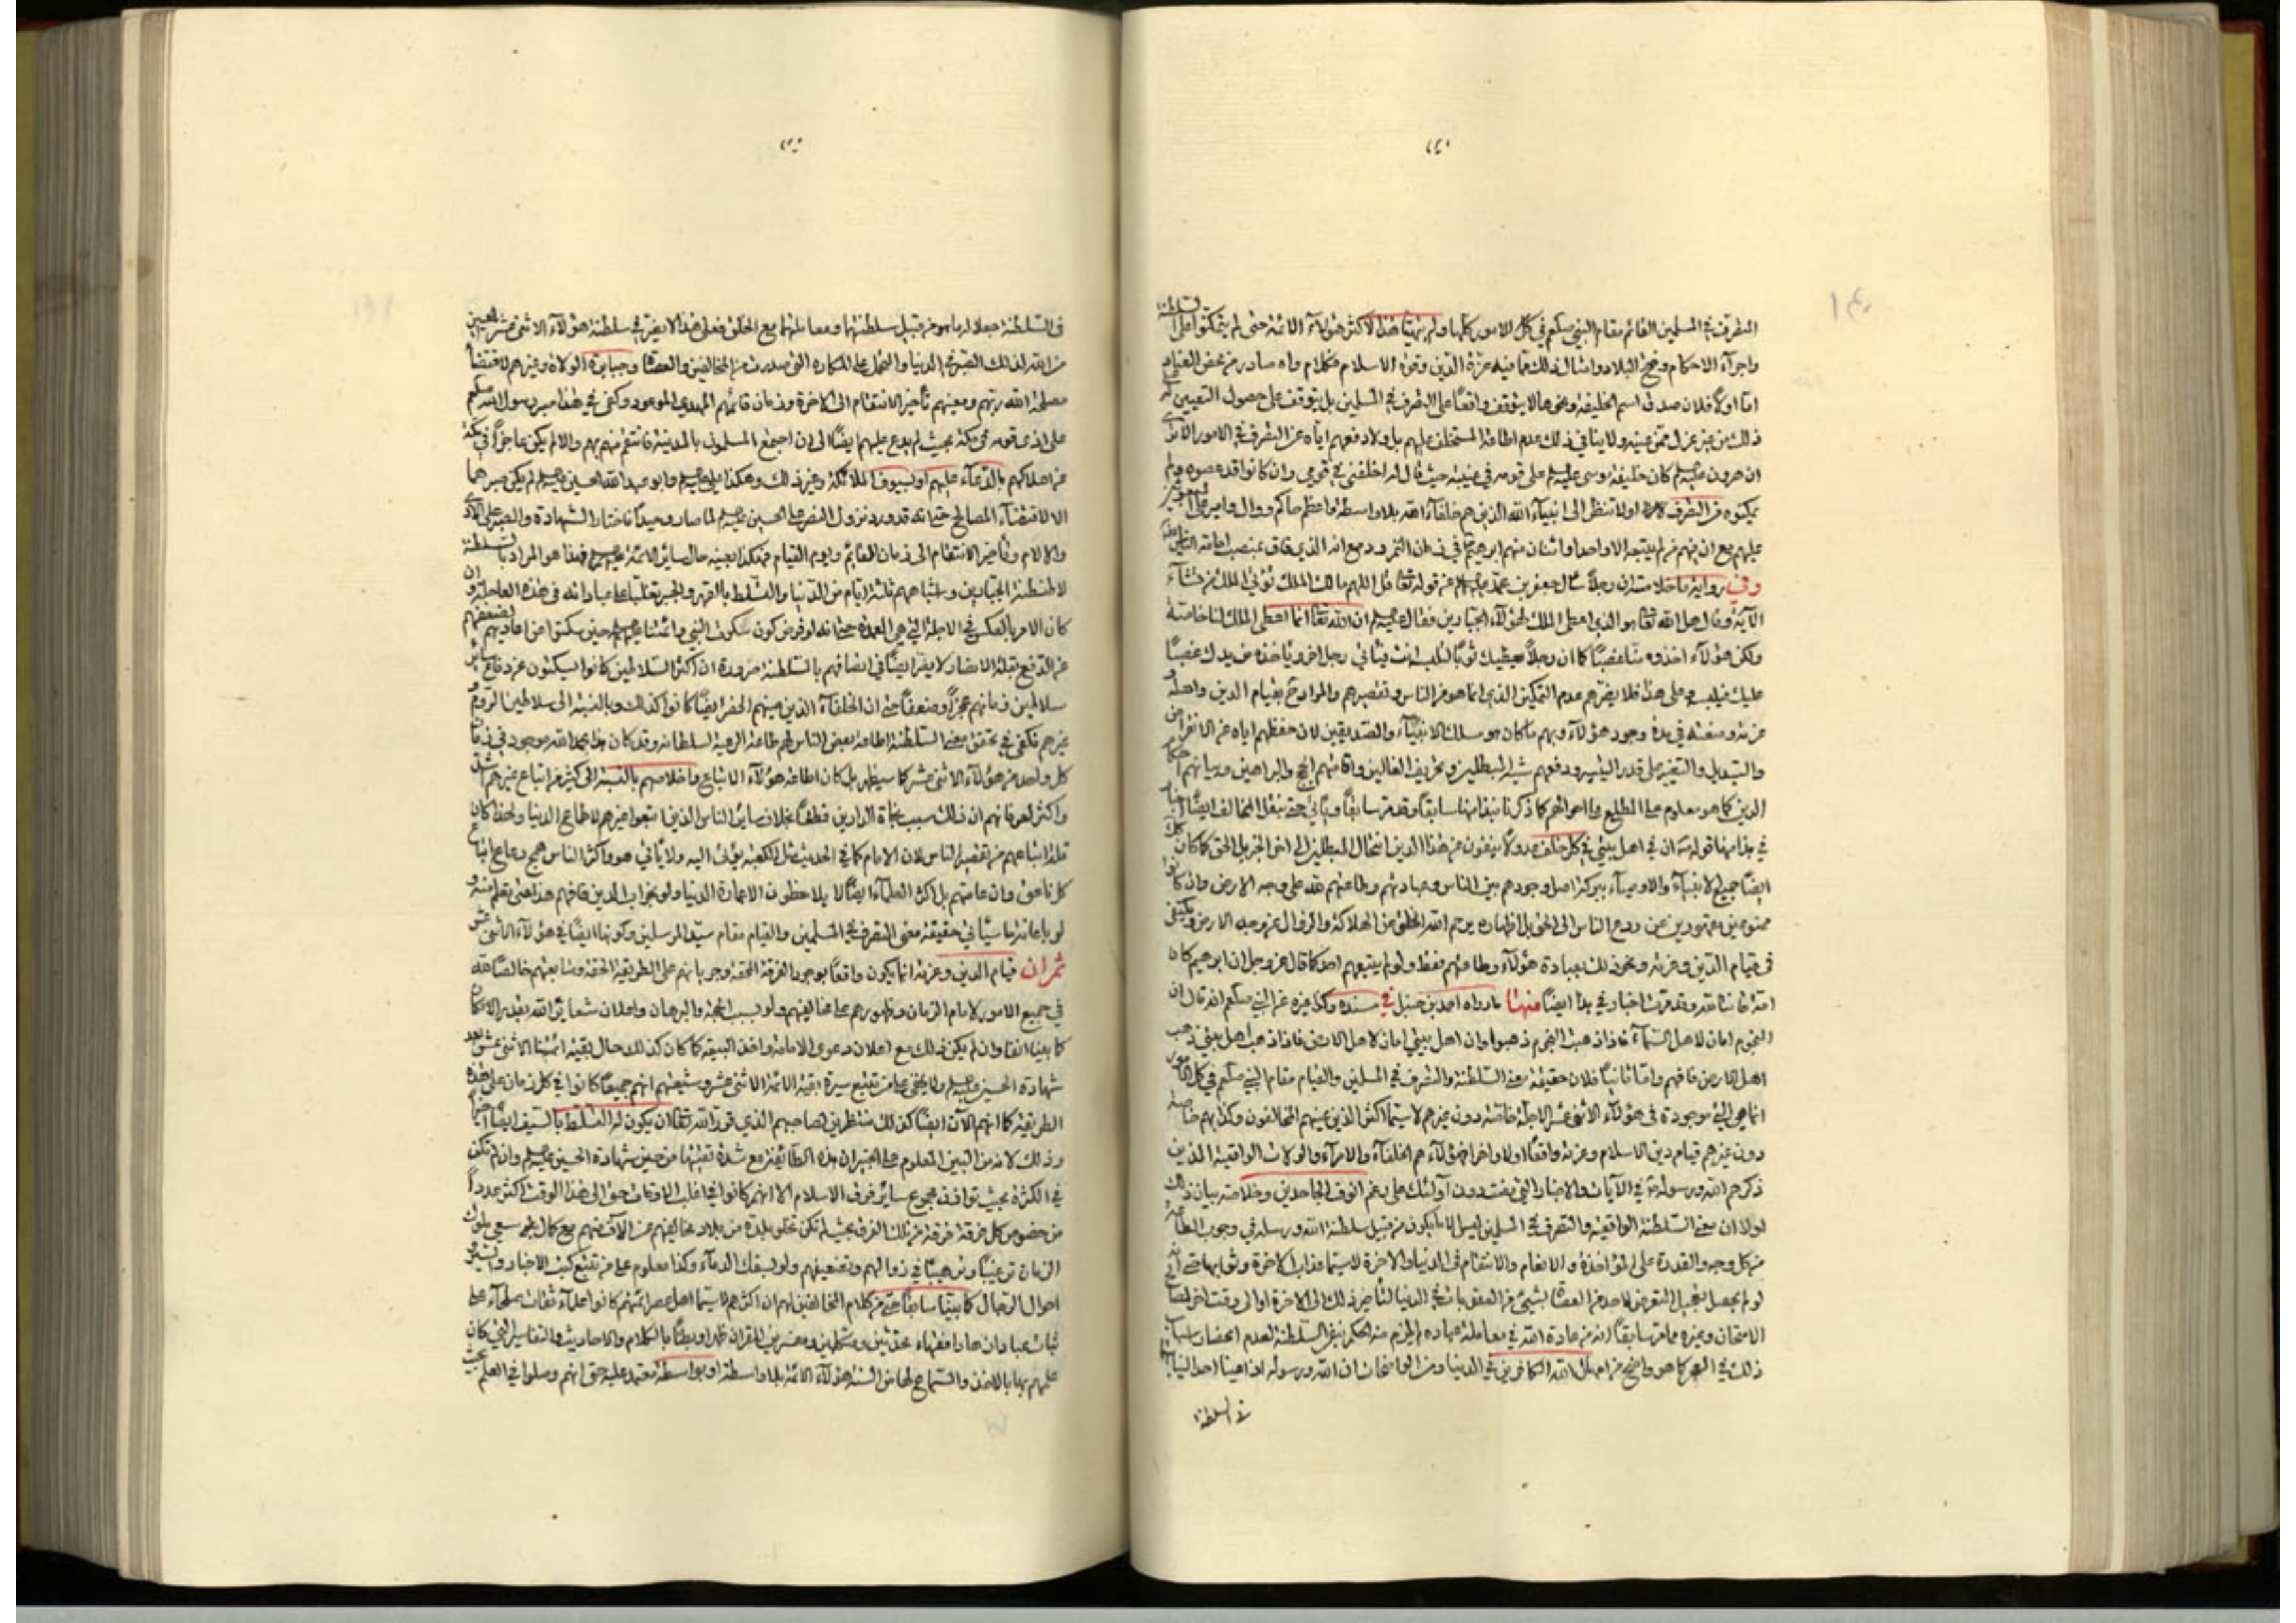 المتصرف في المسلمين القائم مقام النبي صلعم في كل الامور كلها ولم يتهيأ هذا لاكثر هؤلاء الائمة حتى لم يتمكنوا على السلطنة
واجراء الاحكام وفتح البلاد وامثال ذلك مما فيه عزة الدين وقوة الاسلام فكلام واه صادر من محض العناد
اما اولا فلان صدق اسم الخليفة ونحوها لا يتوقف واقعا على التصرف في المسلمين بل يتوقف على حصول التعيين له
ذلك من غير عزل ممن عينه ولا ينافي ذلك عدم اطاعة المستخلف عليهم بل ولا دفعهم اياه عن التصرف في الامور الا ترى
ان هرون عليه السلم كان خليفة موسى عليه السلم على قومه في غيبته حيث قال له اخلفني في قومي وان كانوا قد عصوه ولم
يمكنوه من التصرف اولا تنظر الى انبياء الله الذين هم خلفاء الله بلا واسطة واعظم حاكم ووال وامير على
عليهم مع ان منهم من لم يتبعه الا واحد او اثنان منهم ابرهيم في زمان النمرود مع انه الذي فاق بمنصب امامة
وفي رواية ما خلاصته ان رجلا سال جعفر بن محمد عليهم السلم عن قوله تعالى قل اللهم مالك الملك تؤتي الملك من تشاء
الآية وقال هل الله تعالى هو الذي اعطى الملك لهؤلاء الجبارين فقال عليه السلم ان الله تعالى انما اعطى الملك لنا خاصة
ولكن هؤلاء اخذوه منا غصبا كما ان رجلا يعطيك ثوبا لتلبسه انت فيأتي رجل اخر ويأخذه من يدك غصبا
عليك فيلبسه وعلى هذا فلا يضرهم عدم التمكين الذي انما هو من الناس وتقصيرهم والمراد بقيام الدين واهله و
عزته ومنعته في مدة وجود هؤلاء وبهم ما كان هو مسلك الانبياء والصديقين لان حفظهم اياه عن الانقراض
والتبديل والتغيير على قدر اليسير ودفعهم شبه المبطلين وتحريف الغالين واقامتهم الحج والبراهين وبيانهم احكام
الدين كما هو معلوم على المطلع على احوالهم كما ذكرنا نبذا منها سابقا وقد مر سابقا ويأتي حتى بنقل المخالف ايضا
في هذا منها قوله ص ان في اهل بيتي في كل خلف عدولا ينفون عن هذا الدين انتحال المبطلين الى اخر الخبر بل الحق كما كان
ايضا جميع الانبياء والاوصياء ببركة اصل وجودهم بين الناس وعبادتهم وطاعتهم لله على وجه الارض وان كانوا
ممنوعين مقهورين عن ردع الناس الى الحق بل اظهاره يرحم الله الخلق من الهلاكة والزوال عن وجه الارض ويكفي
في قيام الدين وعزته ونحو ذلك بعبادة هؤلاء وطاعتهم فقط ولو لم يتبعهم احد كما قال عز وجل ان ابرهيم كان
امة قانتا لله وقد مرت اخبار في هذا ايضا منها ما رواه احمد بن حنبل في مسنده وكذا غيره عن النبي صلعم انه قال ان
النجوم امان لاهل السماء فاذا ذهبت النجوم ذهبوا وان اهل بيتي امان لاهل الارض فاذا ذهب اهل بيتي ذهب
اهل الارض فافهم واما ثانيا فلان حقيقة معنى السلطنة والتصرف في المسلمين والقيام مقام النبي صلعم في كل الامور
انما هي التي موجودة في هؤلاء الاثنى عشر الاجلة خاصة دون غيرهم لا سيما اكثر الذين عينهم المخالفون وكذا بهم خاصة
دون غيرهم قيام دين الاسلام وعزته واقعا اولا واخرا فهؤلاء هم الخلفاء والامراء والولات الواقعية الذين
ذكرهم الله ورسوله في الآيات والاخبار التي يقتدون اولئك على رغم انوف الجاحدين وخلاصة بيان ذلك
اولا ان معنى السلطنة الواقعية والتصرف في المسلمين ليس الا ما يكون من قبيل سلطنة الله ورسله في وجوب الطاعة
من كل وجه والقدرة على المؤاخذة والانعام والانتقام في الدنيا والاخرة لا سيما عذاب الاخرة وثوابها حتى انه
لو لم يحصل تعجيل التعرض لاحد من العصاة بشيء من العقوبات في الدنيا لتأخير ذلك الى الاخرة او الى وقت اخر لمصالح
الامتحان وغيره مما مر سابقا انه من عادة الله في معاملة عباده لم يلزم منه الحكم بنفي السلطنة لعدم انحصار اسباب
ذلك في القهر كما هو واضح من امهال الله الكافرين في الدنيا ومن الواضحات ان الله ورسوله اذا عينا احدا لنيابتهما
في السلطنة
في السلطنة جعلا له ما هو من قبيل سلطنتهما ومعاملتهما مع الخلق فعلى هذا لا يضر في سلطنة هؤلاء الاثنى عشر المعينين
من الله لذلك الصبر في الدنيا والتحمل على المكاره التي صدرت من المخالفين والعصاة وجبابرة الولاة وغيرهم لاقتضاء
مصلحة الله ربهم ومعينهم تأخير الانتقام الى الاخرة وزمان قائمهم المهدي الموعود وكفى في هذا صبر رسول الله صلعم
على اذى قومه في مكة بحيث لم يدع عليهم ايضا الى ان اجتمع المسلمون بالمدينة فانتقم منهم بهم والا لم يكن عاجزا في مكة
عن اهلاكهم بالدعاء عليهم او بسيوف الملائكة وغير ذلك وهكذا علي عليه السلم وابو عبد الله الحسين عليه السلم لم يكن صبرهما
الا لاقتضاء المصالح حتى انه قد ورد نزول النصر على الحسين عليه السلم لما صار وحيدا فاختار الشهادة والصبر على الاذى
والالام وتأخير الانتقام الى زمان القائم ويوم القيام وهكذا بعينه حال ساير الائمة عليهم السلم فهذا هو المراد بالسلطنة
لا سلطنة الجبارين واشباههم ثلثة ايام من الدنيا والتسلط بالقهر والجبر تغلبا على عباد الله في هذه العاجلة وان
كان الامر بالعكس في الاجلة التي هي العمدة حتى انه لو فرض كون سكوت النبي وائمتنا عليهم السلم حين سكتوا عن اعاديهم لضعفهم
عن الدفع بقلة الانصار لا يضر ايضا في اتصافهم بالسلطنة ضرورة ان اكثر السلاطين كانوا يسكتون عن دفاع ساير
سلاطين زمانهم عجزا وضعفا حتى ان الخلفاء الذين عينهم الخصم ايضا كانوا كذلك وبالنسبة الى سلاطين الروم و
غيرهم فكفى في تحقق معنى السلطنة اطاعة بعض الناس لهم طاعة الرعية لسلطانه وقد كان هذا بحمد الله موجودا في زمان
كل واحد من هؤلاء الاثنى عشر كما سيظهر بل كان اطاعة هؤلاء الاتباع واخلاصهم بالنسبة الى كثير من اتباع غيرهم اشد
واكثر لعرفانهم ان ذلك سبب نجاة الدارين قطعا بخلاف ساير الناس الذين اتبعوا غيرهم لاطماع الدنيا ولهذا كان
قلة اتباعهم من تقصير الناس لان الامام كما في الحديث مثل الكعبة يؤتى اليه ولا يأتي هو واكثر الناس همج رعاع اتباع
كل ناعق وان عامتهم بل اكثر العلماء ايضا لا يلاحظون الا عمارة الدنيا ولو بخراب الدين فافهم هذا حتى تعلم منه و
لو باعانة ما سيأتي حقيقة معنى التصرف في المسلمين والقيام مقام سيد المرسلين وكونها ايضا في هؤلاء الاثنى عشر
ثم ان قيام الدين وعزته انما يكون واقعا بوجود الفرقة المحقة وجريانهم على الطريقة الحقة ومتابعتهم خالصا لله
في جميع الامور لامام الزمان وظهورهم على مخالفيهم ولو بسبب الحجة والبرهان واعلان شعائر الله بقدر الامكان
كما بينا انفا وان لم يكن ذلك مع اعلان دعوى الامامة واخذ البيعة كما كان كذلك حال بقية ائمتنا الاثنى عشر بعد
شهادة الحسين عليه السلم ولا يخفى على من تتبع سيرة بقية الائمة الاثنى عشر وشيعتهم انهم جميعا كانوا في كل زمان على هذه
الطريقة كما انهم الآن ايضا كذلك منتظرين لصاحبهم الذي قرر الله تعالى ان يكون له التسلط بالسيف ايضا اخيرا
وذلك لانه من البين المعلوم على الخبير ان هذه الطائفة مع شدة تقيتها من حين شهادة الحسين عليه السلم وان لم تكن
في الكثرة بحيث توازن مجموع ساير فرق الاسلام الا انهم كانوا في اغلب الاوقات حتى الى هذا الوقت اكثر عددا
من خصوص كل فرقة فرقة من تلك الفرق بحيث لم تكن تخلو بلدة من بلاد مخالفيهم عن الاف منهم مع كمال سعي ملوك
الزمان ترغيبا وترهيبا في زوالهم وتضعيفهم ولو بسفك الدماء وكذا معلوم على من تتبع كتب الاخبار والسير و
احوال الرجال كما بينا سابقا حتى من كلام المخالفين لهم ان اكثرهم لا سيما اهل عصر ائمتهم كانوا علماء ثقات صلحاء على
ثبات عبادا زهادا فقهاء محدثين ومتكلمين ومفسرين للقران ظهرا وبطنا بالكلام والاحاديث والتفاسير التي كان
علمهم بها بالاخذ والسماع لها من السنة هؤلاء الائمة بلا واسطة او بواسطة معتمد عليه حتى انهم وصلوا في العلم بحيث